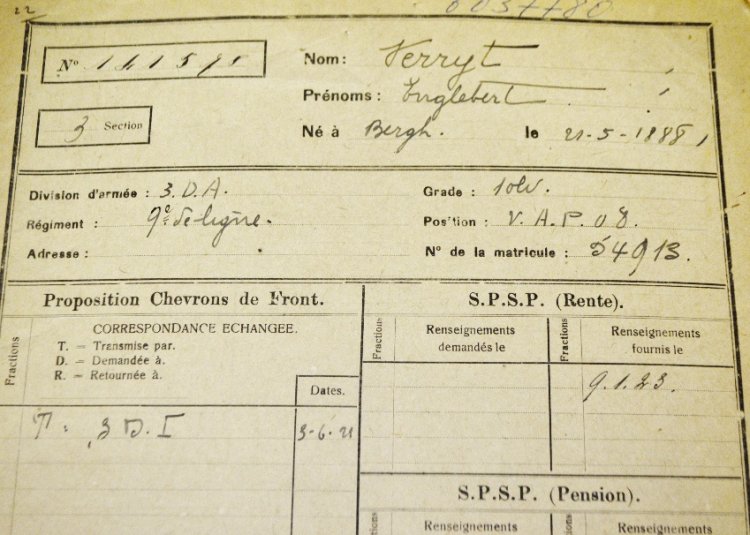 22
0037780
Nº 141595
Nom: Verryt
3 Section
Prénoms: Englebert
Né à Bergh. le 21-5-1888
Division d'armée: 3.D.A.
Grade: Sold.
Régiment: 9e de ligne.
Position: V.A.P.08.
Adresse:
Nº de la matricule: 54913.
Proposition Chevrons de Front.
S.P.S.P. (Rente).
Fractions
CORRESPONDANCE ECHANGEE.
T. = Transmise par.
D. = Demandée à.
R. = Retournée à.
Dates.
Fractions
Renseignements
demandés le
Fractions
Renseignements
fournis le
9.1.23.
T: 3 D.I 3-6.21
S.P.S.P. (Pension).
Renseignements
Renseignements